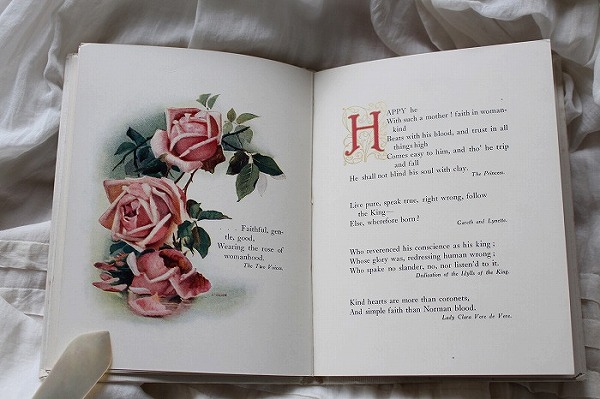 . . . . Faithful, gen-
tle, good,
Wearing the rose of
womanhood.
The Two Voices.
HAPPY he
With such a mother! faith in woman-
kind
Beats with his blood, and trust in all
things high
Comes easy to him, and tho' he trip
and fall
He shall not blind his soul with clay.
The Princess.
Live pure, speak true, right wrong, follow
the King—
Else, wherefore born?
Gareth and Lynette.
Who reverenced his conscience as his king;
Whose glory was, redressing human wrong;
Who spake no slander, no, nor listen'd to it.
Dedication of the Idylls of the King.
Kind hearts are more than coronets,
And simple faith than Norman blood.
Lady Clara Vere de Vere.